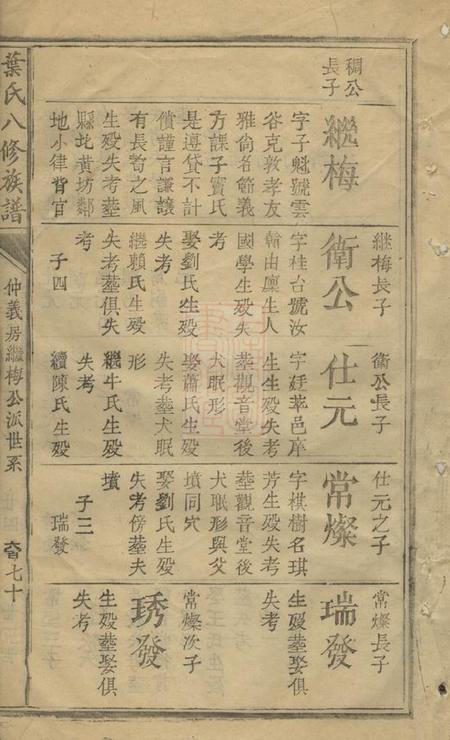 稠公
長子
繼梅
字子魁號雲
谷克敦孝友
雅尚名節義
方課子賓氏
是遵貸不計
償謹言謙讓
有長者之風
生殁失考塟
縣北黃坊鄰
地小律背官
繼梅長子
衛公
字桂台號汝
翰由廩生人
國學生殁失
考
娶劉氏生殁
失考
繼賴氏生殁
失考塟俱失
考
子四
衛公長子
仕元
字廷萃邑庠
生生殁失考
塟觀音堂後
犬眠形
娶蕭氏生殁
失考塟犬眠
形
繼牛氏生殁
失考
續陳氏生殁
仕元之子
常燦
字棋樹名琪
芳生殁失考
塟觀音堂後
犬眠形與父
墳同穴
娶劉氏生殁
失考傍塟夫
墳
子三
瑞發
常燦長子
瑞發
生殁塟娶俱
失考
常燦次子
琇發
生殁塟娶俱
失考
葉氏八修族譜
仲義房繼梅公派世系
七十